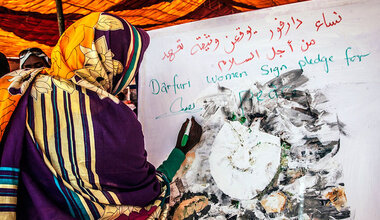 نساء دارفور يوقعن وثيقة تعهد
من أجل السلام
Darfuri Women Sign pledge for